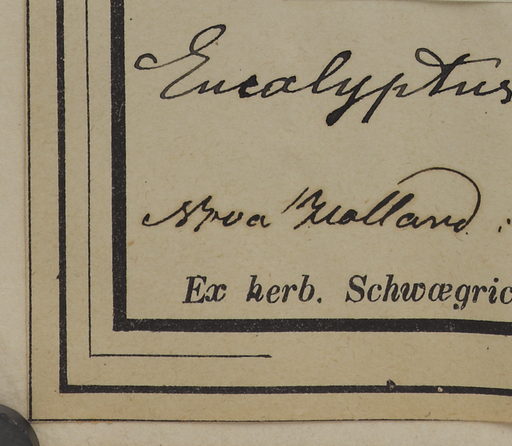 Eucalyptus
Nova Holland.
Ex herb. Schwægric